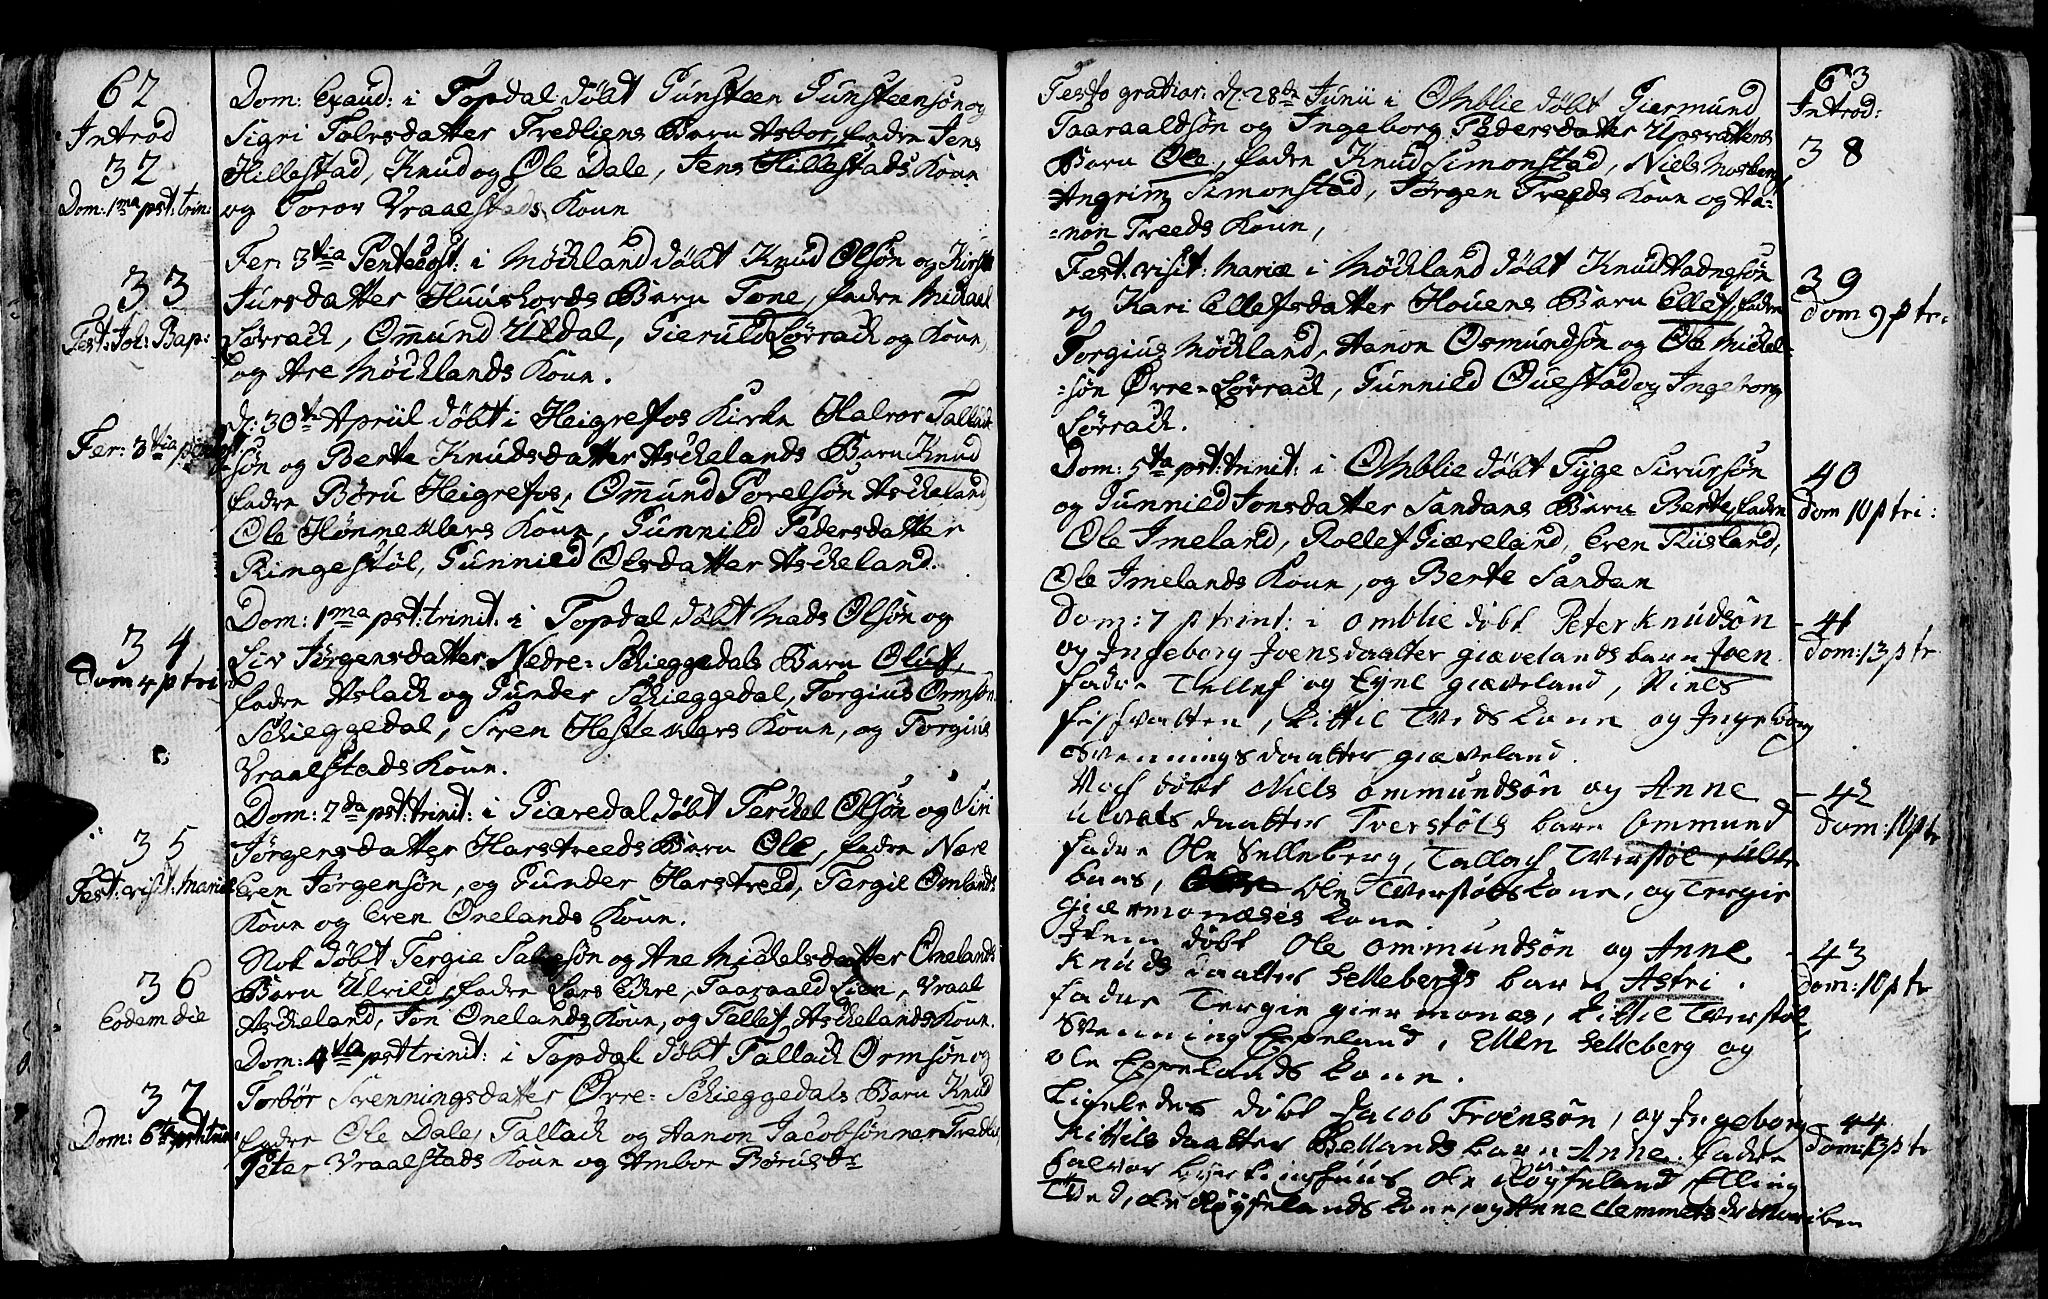 62
Introd
32
Dom: 1ma pst: trin:
33
Fest: Joh: Bap:
Fer: 3tia
34
Dom 4 p tri
35
Fest: visit: Mariæ
36
Eodem die
37
Dom: 6ta pst: trin:
Dom: Exaud: i Topdal döbt Gunsteen Gunsteensön og
Sigri Talvsdatter Tredliens Barn Asbor, fadre Jens
Hillestad, Knud og Ole Dale, Jens Hillestads Koun
og Torov Vraalstads Koun
Fer: 3tia Pentecost: i Möckland döbt Knud Olsön og
Jursdatter Huushords Barn Tone, fadre Michael
Lörrack, Omund Uldal, Gieruld Lörrack og Koun,
og Are Möcklands Koun.
d: 30te April döbt i Heigrefos Kirke Halvor
sön og Berte Knudsdatter Askelands Barn Knud
fadre Böru Heigrefos, Omund Porelsön Askeland
Ole Hönnemyrs Koun, Gunnild Pedersdatter
Ringestöl, Gunnild Olsdatter Askeland.
Dom: 1ma pst: trinit: i Topdal döbt Mads Olsön og
Siv Jörgensdatter Nedre-Skieggedals Barn Oluf,
fadre Aslack og Gunder Skieggedal, Torgius Ormsön
Skieggedal, Sven Hestemyrs Koun, og Torgius
Vraalstads Koun.
Dom: 2da pst: trinit: i Giæredal döbt Terckel Olsön og Siri
Jörgensdatter Harstveeds Barn Ole, fadre
Even Jörgensön, og Gunder Harstveed, Tergie Omlands
Koun og Even Onelands Koun.
Nok döbt Tergie sön og Ane Mickelsdatter Onelands
Barn Ulvild, fadre Lars Eckre, Taaraald Lien, Vraal
Askeland, Jon Onelands Koun, og Tellef Askelands Koun.
Dom: 4ta pst: trinit: i Topdal döbt Tallack Ormsön og
Torbör Svenningsdatter Övre-Skieggedals Barn Knud
fadre Ole Dale, Tallack og Aanon Jacobsönner
Peter Vraalstads Koun og Ambor Börusdr
Festo gratiar: d: 28de Junii i Omblie döbt Giermund
Taaraaldsön og Ingeborg Pedersdatter Upsvattens
Barn Ole, fadre Knud Simonstad, Niels
Angrim Simonstad, Jörgen Treeds Koun og Aa-
=non Treeds Koun,
Fest. visit: Mariæ i Möckland döbt Knud Aadnesön
og Kari Ellefsdatter Houens Barn Ellef, fadre
Torgius Möckland, Aanon Osmundsön og Ole Mickel-
=sön Övre=Lörrack, Gunnild Ouestad og Ingeborg
Lörrack.
Dom: 5ta pst: trinit: i Omblie döbt Tyge Sivursön
og Gunnild Jonsdatter Sandans Barn Berte, fadre
Ole Imeland, Rollef Giæveland, Even Riisland,
Ole Imelands Koun, og Berte Sandan
Dom: 7 p trint: i Omblie döbt Peter Knudsön
og Ingeborg Joensdaatter giævelands barn Joen.
fadre Tellef og Eyvl giæveland, Niels
fisfvatten, Kittil Tveds Kone og Ingeborg
Svenningsdaatter giæveland.
Noch döbt Niels Ommundsön og Anne
Ulvalsdaatter Tverstöls barn Ommund
fadre Ole Selleberg, Tallach Tverstöl,
Ole Tverstöls kone, og Tergie
giermonæses kone.
Item döbt Ole Ommundsön og Anne
Knudsdaatter Sellebergs barn Astri.
fadre Tergie giermones, Kittil Tverstöl,
Svenning Eppeland, Ellen Selleberg og
Ole Eppelands kone.
Ligeledes döbt Jacob Troensön, og Ingeborg
Kittilsdaatter Bellands barn Anne. fadre
Halvor Ole Röyseland, Elling
Tved, Ole Röyselands kone, og Anne
63
Introd:
38
39
Dom 9 p tr:
40
Dom 10 p tri:
- 41
Dom: 13 p tr
- 42
Dom: 10 p tr
- 43
Dom: 10 p tr
44
Dom: 13 p tr